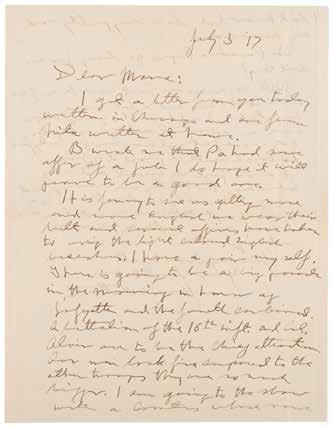 July 3 '17
Dear Mama:
I got a letter from you today
written in Chicago and one from
written at home.
B wrote me that Pa had some
offer of a job. I do hope it will
prove to be a good one.
It is funny to see us getting more
and more English we wear their
belt and several officers have taken
to using the light colored English
breeches. I have a pair my self.
There is going to be a big parade
in the morning in honor of
Lafayette and the fourth combined.
A battalion of the 16th inft. and
are to be the chief attraction
Our men look fine compared to the
other troops they are so much
bigger. I am going to the show
with a whose